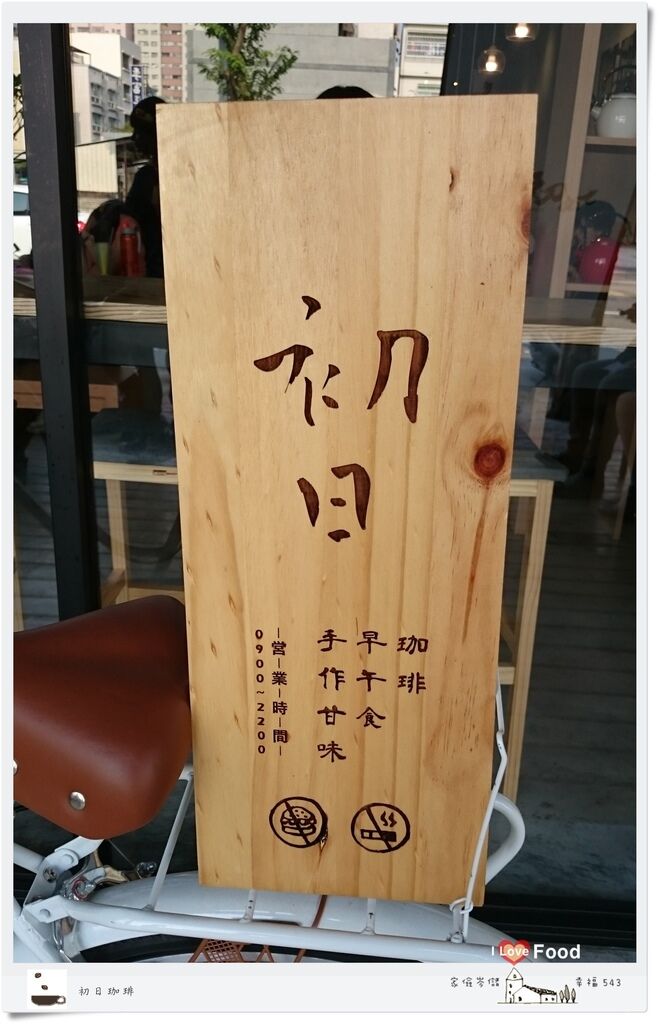 初日
珈琲
早午食
手作甘味
－營－業－時－間－
0900~2200
I Love Food
初日珈琲
幸福543